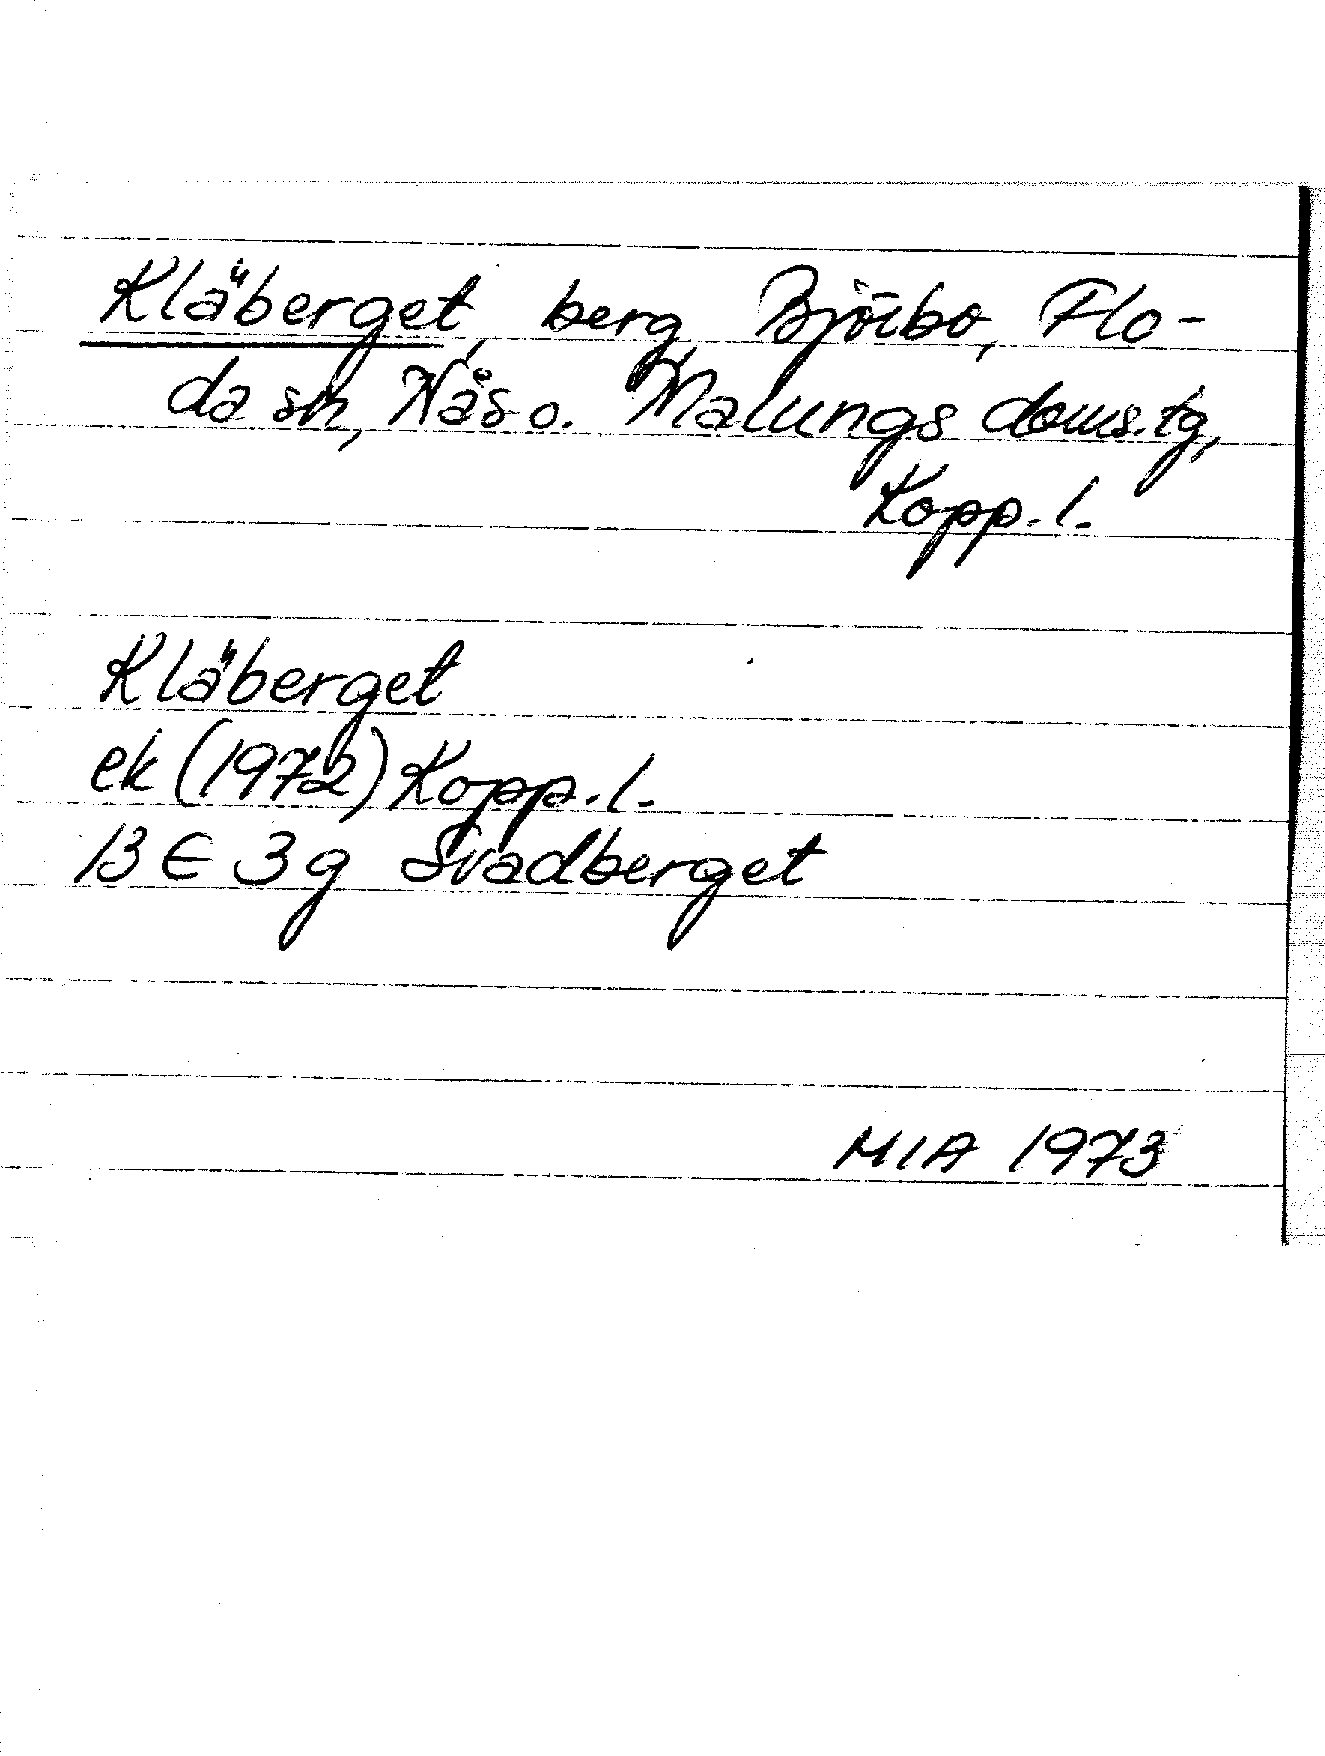 Kläberget, berg, Björbo, Flo-
da sn, Nås o. Malungs doms.tg,
Kopp. l.
Kläberget
ek (1972) Kopp. l.
13 E 3 g Svadberget
MIA 1973